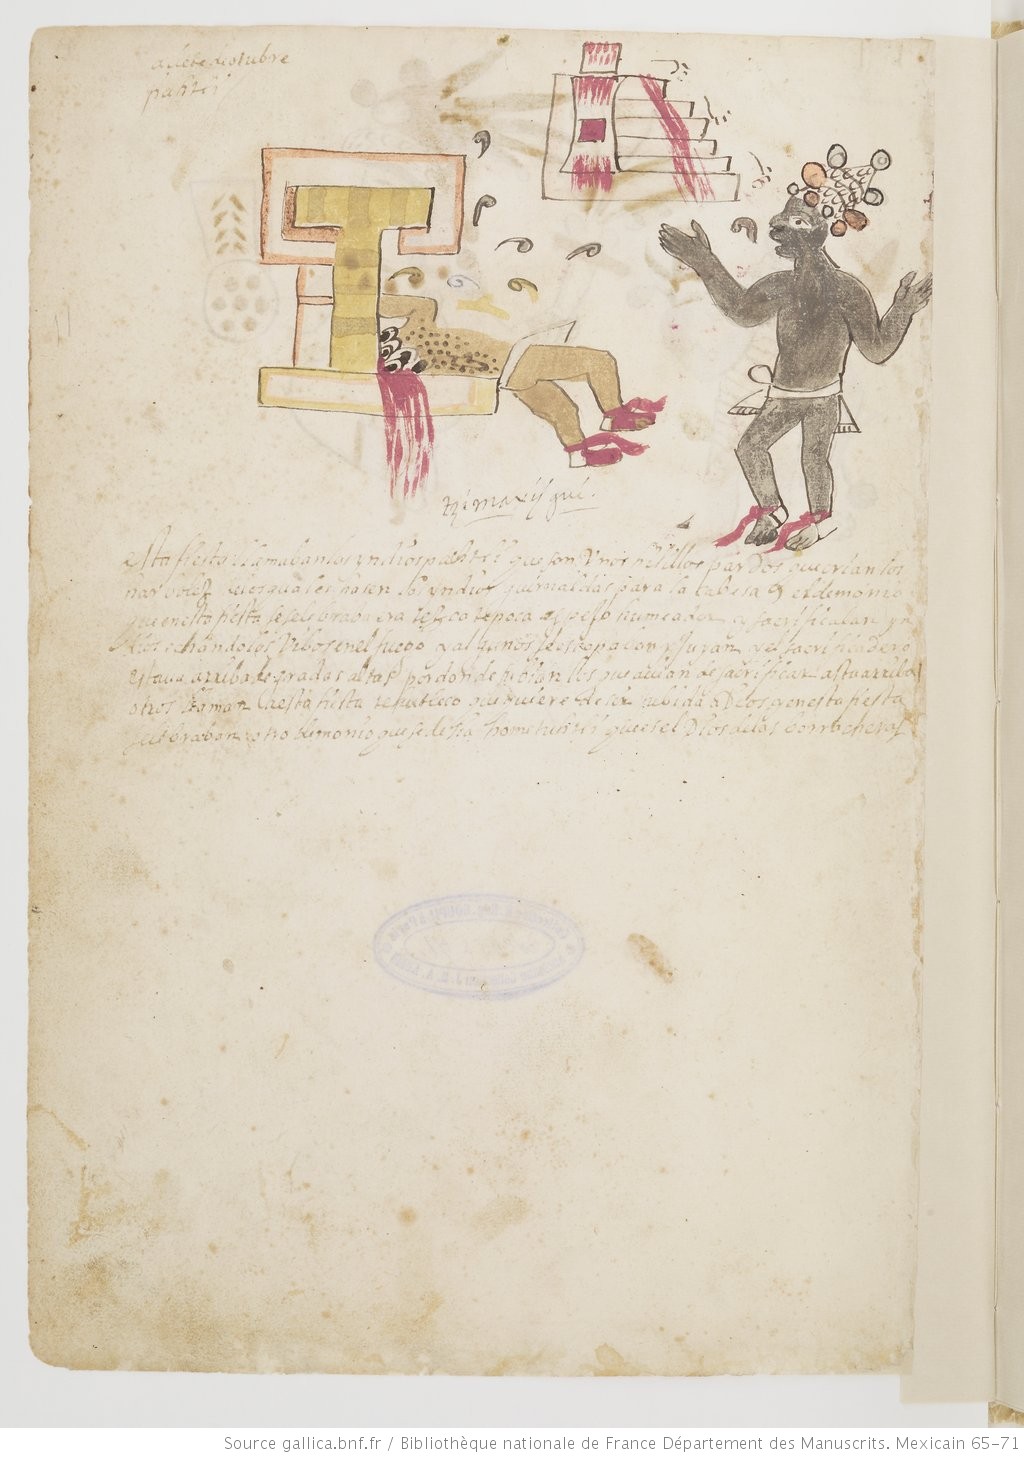 a siete de otubre
pachtli
tzimaxisqui.
esta fiesta llamaban los yndios pachtli que son unos pelillos pardos que crian los
arboles de los quales hacen los yndios guirnaldas para la cabeza y el demonio
que en esta fiesta se selebraba era tezcatepoca espejo humeador y sacrificaban yn
dios echandolos vibos en el fuego y algunos se escapaban y huyan y el sacrificadero
estava arriba de gradas altas por donde subian los que abian de sacrificar asta arriba
otros llaman a esta fiesta teutleco que quiere desir subida a Dios y en esta fiesta
celebraban otro demonio que se desia hometuctli que es el Dios de las borracheras
Source gallica.bnf.fr / Bibliothèque nationale de France Département des Manuscrits. Mexicain 65-71